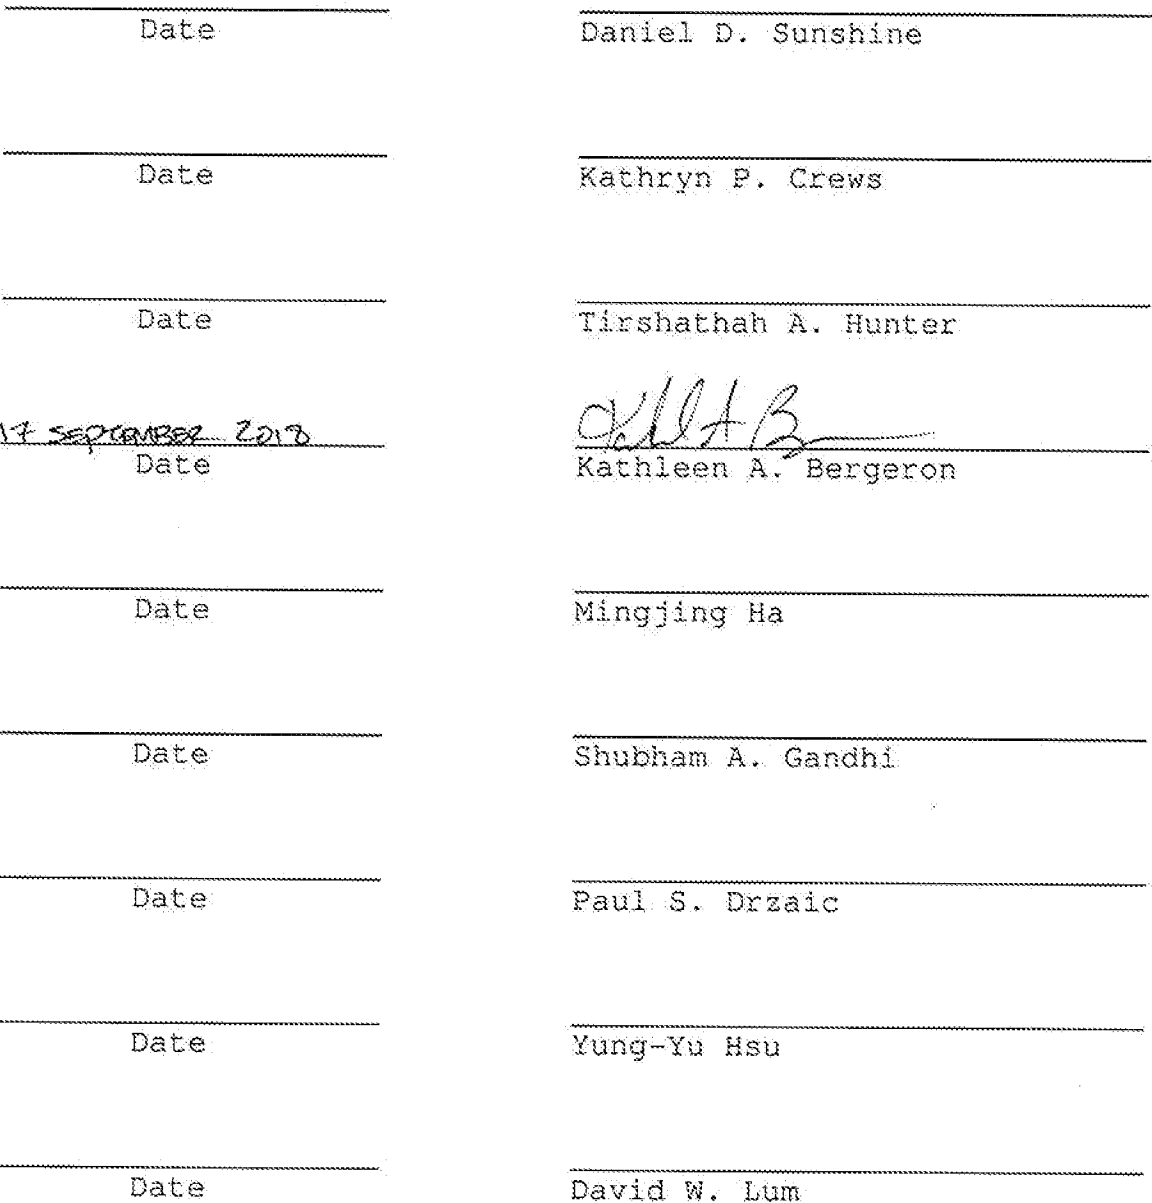 Date Daniel D. Sunshine
Date Kathryn P. Crews
Date Tirshathah A. Hunter
17 SEPTEMBER 2018
Date Kathleen A. Bergeron
Date Mingjing Ha
Date Shubham A. Gandhi
Date Paul S. Drzaic
Date Yung-Yu Hsu
Date David W. Lum